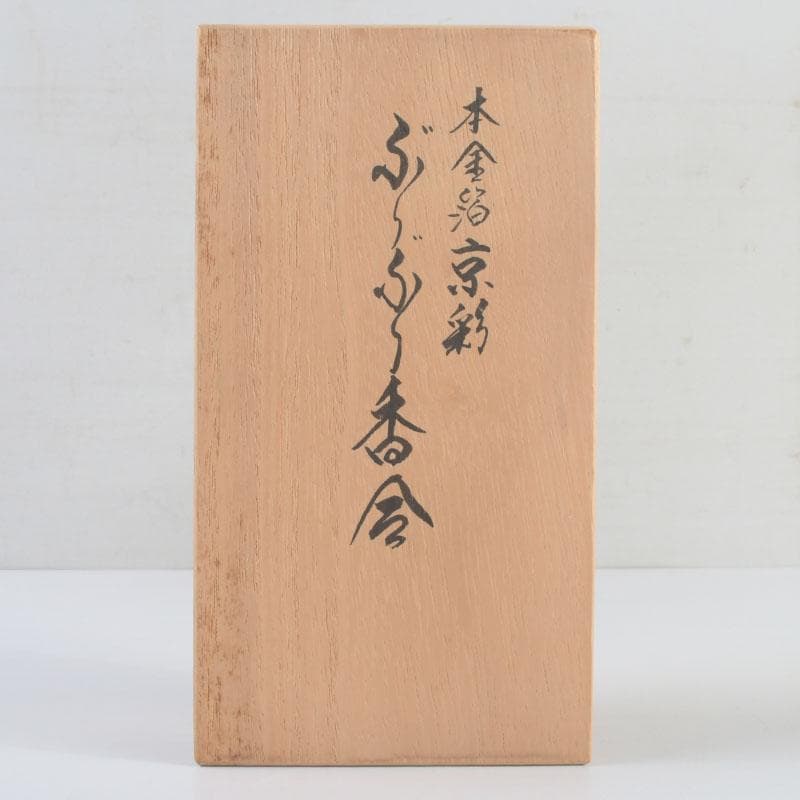 本金箔京彩
ぶりぶり香合